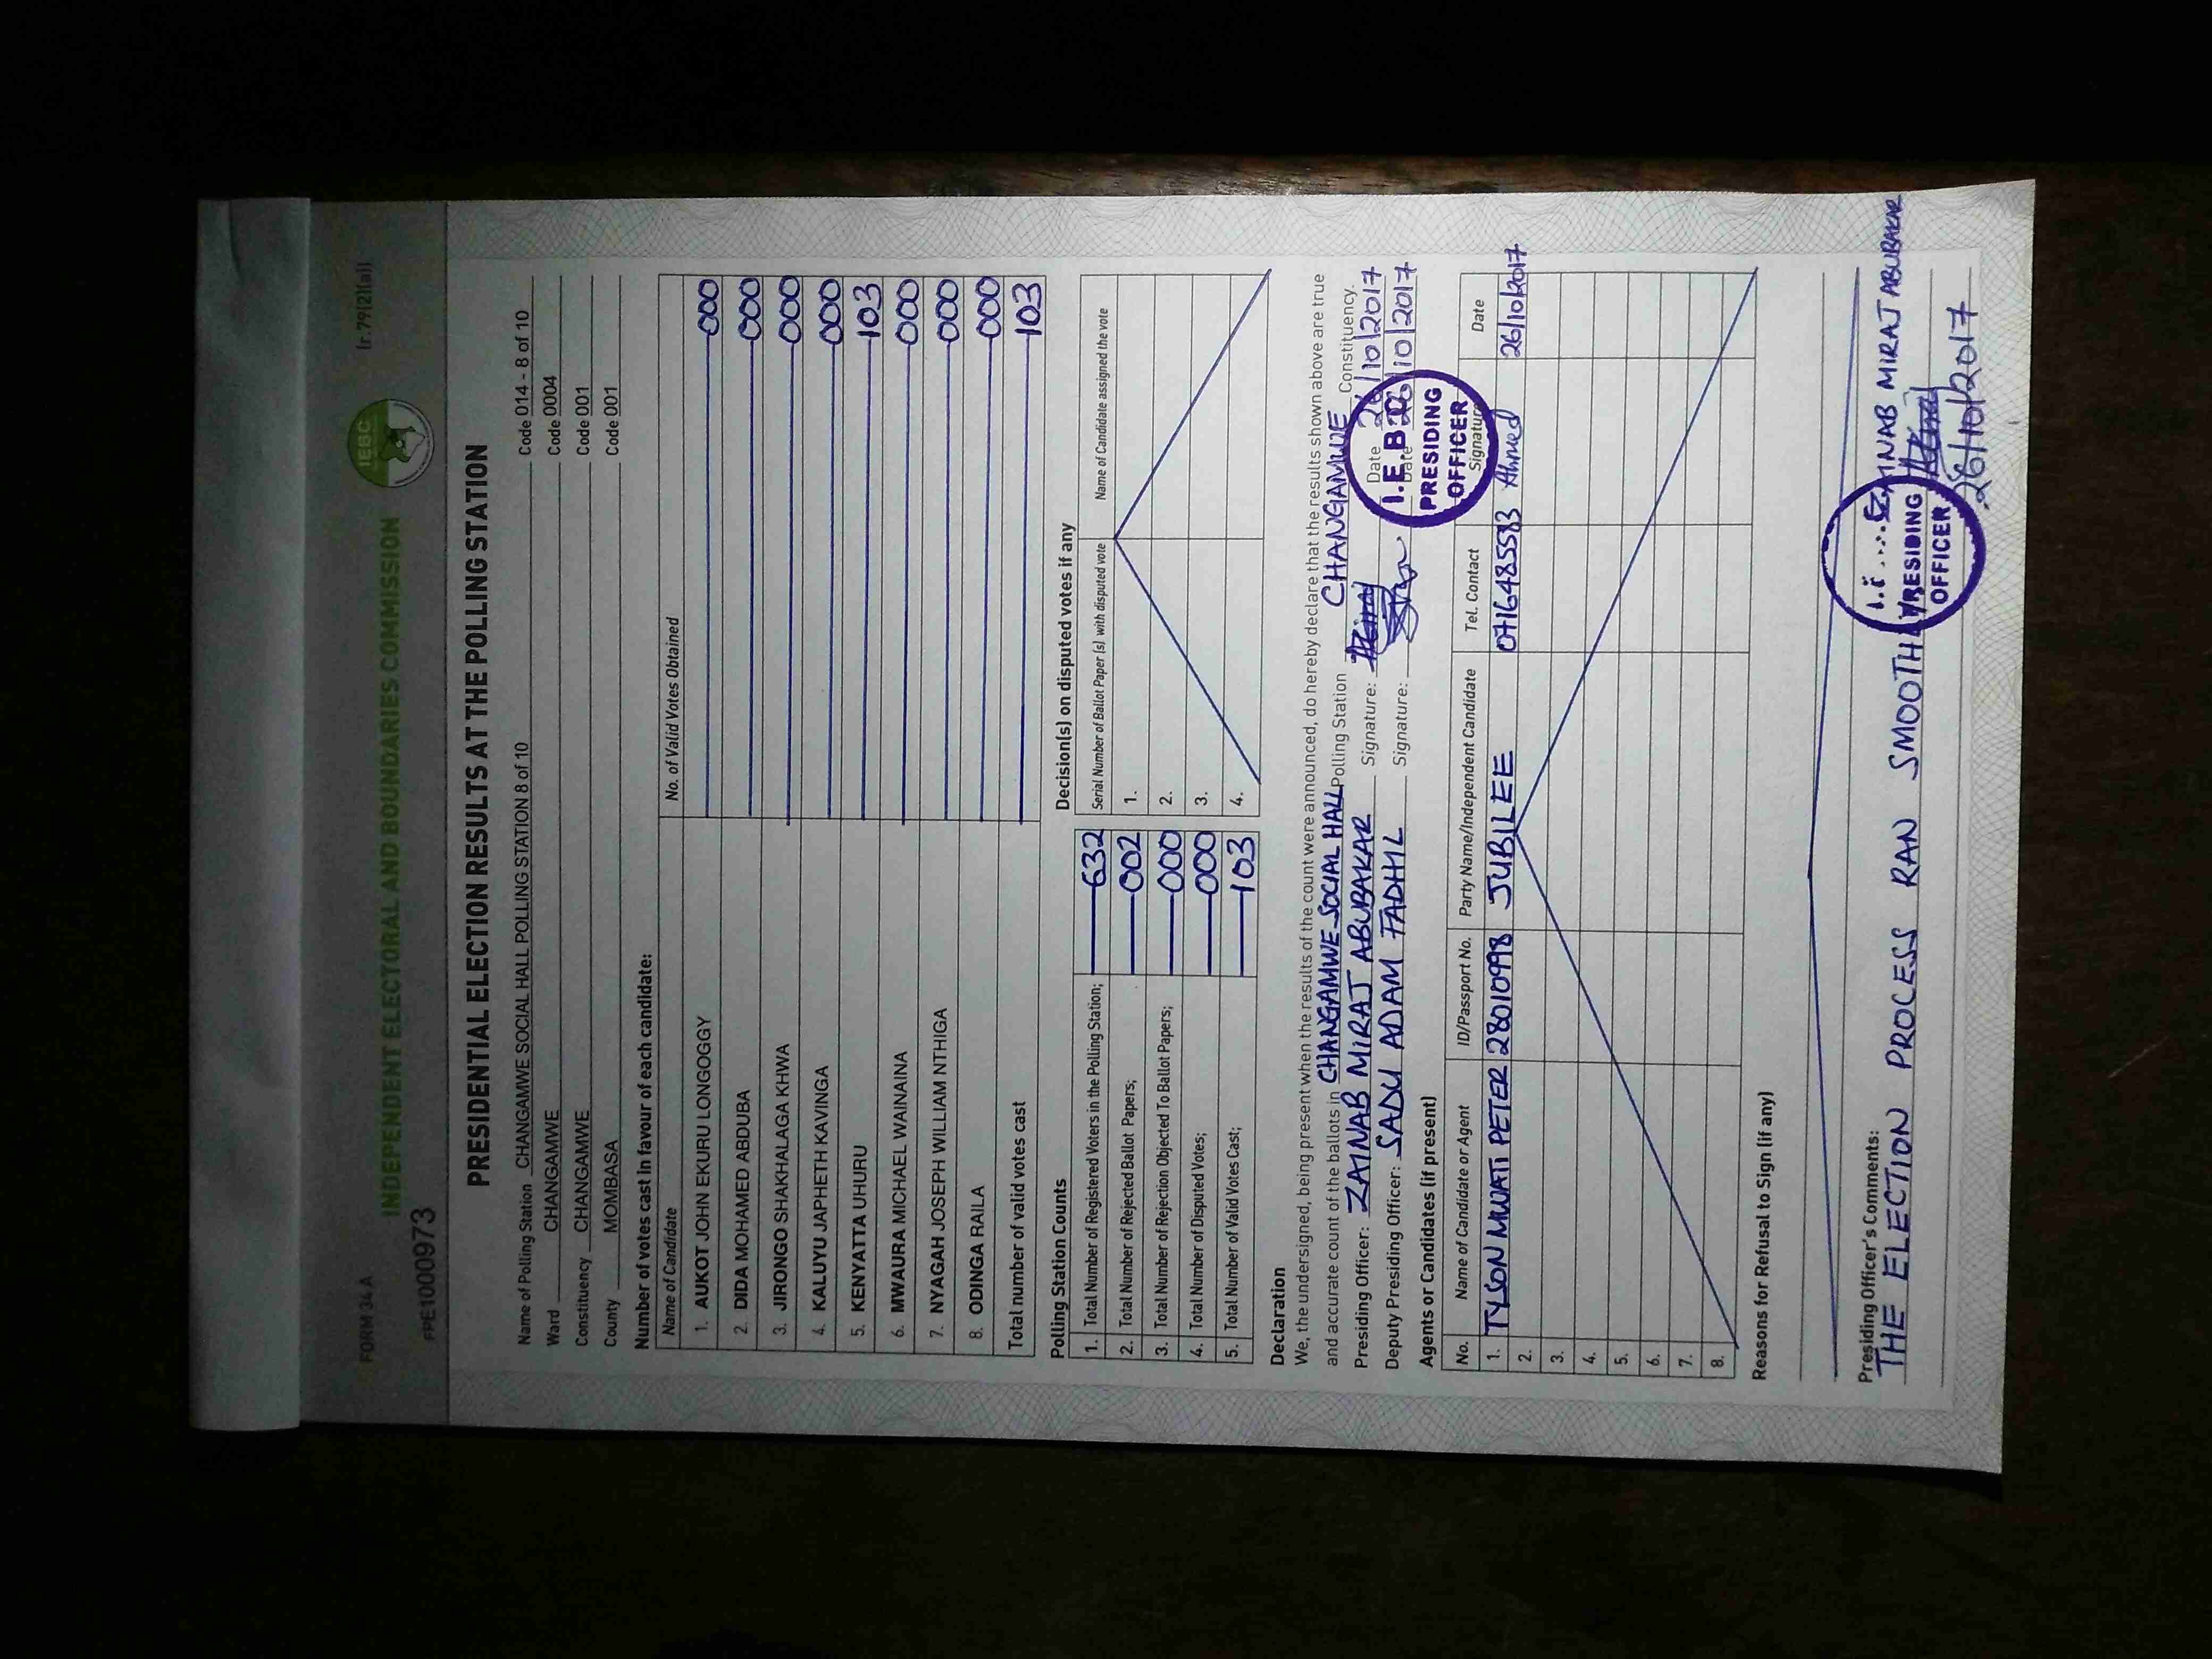 FORM 34A
(r.79(2)(a))
FPE1000973
INDEPENDENT ELECTORAL AND BOUNDARIES COMMISSION
IEBC
PRESIDENTIAL ELECTION RESULTS AT THE POLLING STATION
Name of Polling Station CHANGAMWE SOCIAL HALL POLLING STATION 8 of 10 Code 014 - 8 of 10
Ward CHANGAMWE Code 0004
Constituency CHANGAMWE Code 001
County MOMBASA Code 001
Number of votes cast in favour of each candidate:
Name of Candidate No. of Valid Votes Obtained
1. AUKOT JOHN EKURU LONGOGGY 000
2. DIDA MOHAMED ABDUBA 000
3. JIRONGO SHAKHALAGA KHWA 000
4. KALUYU JAPHETH KAVINGA 000
5. KENYATTA UHURU 103
6. MWAURA MICHAEL WAINAINA 000
7. NYAGAH JOSEPH WILLIAM NTHIGA 000
8. ODINGA RAILA 000
Total number of valid votes cast 103
Polling Station Counts
1. Total Number of Registered Voters in the Polling Station; 632
2. Total Number of Rejected Ballot Papers; 002
3. Total Number of Rejection Objected To Ballot Papers; 000
4. Total Number of Disputed Votes; 000
5. Total Number of Valid Votes Cast; 103
Decision(s) on disputed votes if any
Serial Number of Ballot Paper (s) with disputed vote Name of Candidate assigned the vote
1.
2.
3.
4.
Declaration
We, the undersigned, being present when the results of the count were announced, do hereby declare that the results shown above are true
and accurate count of the ballots in CHANGAMWE SOCIAL HALL Polling Station CHANGAMWE Constituency.
Presiding Officer: ZAINAB MIRAJ ABUBAKAR Signature: Date 26/10/2017
Deputy Presiding Officer: SADU ADAM FADHIL Signature: Date 26/10/2017
I.E.B.C
PRESIDING
OFFICER
Agents or Candidates (if present)
No. Name of Candidate or Agent ID/Passport No. Party Name/Independent Candidate Tel. Contact Signature Date
1. TYSON MWATI PETER 28010998 JUBILEE 0716485583 Ahmed 26/10/2017
2.
3.
4.
5.
6.
7.
8.
Reasons for Refusal to Sign (if any)
Presiding Officer's Comments:
THE ELECTION PROCESS RAN SMOOTHLY ZAINAB MIRAJ ABUBAKAR
PRESIDING
OFFICER
26/10/2017